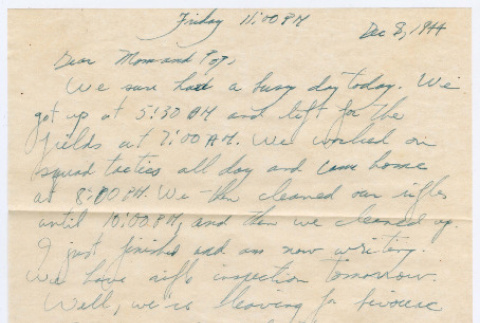 Friday 11:00 PM
Dec 8, 1944
Dear Mom and Pop,
We sure had a busy day today. We
got up at 5:30 AM and left for the
fields at 7:00 AM. We worked on
squad tactics all day and came home
at 8:00 PM. We then cleaned our rifles
until 10:00 PM, and then we cleaned up.
I just finished and am now writing.
We have rifle inspection tomorrow.
Well, we're leaving for bivouac